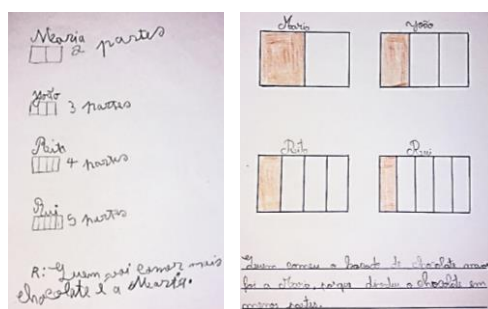 Maria
2 partes
João
3 partes
Rita
4 partes
Rui
5 partes
R: Quem vai comer mais
chocolate é a Maria.
Maria
João
Rita
Rui
Quem comeu o bocado de chocolate maior
foi a Maria, porque dividiu o chocolate em
menos partes.